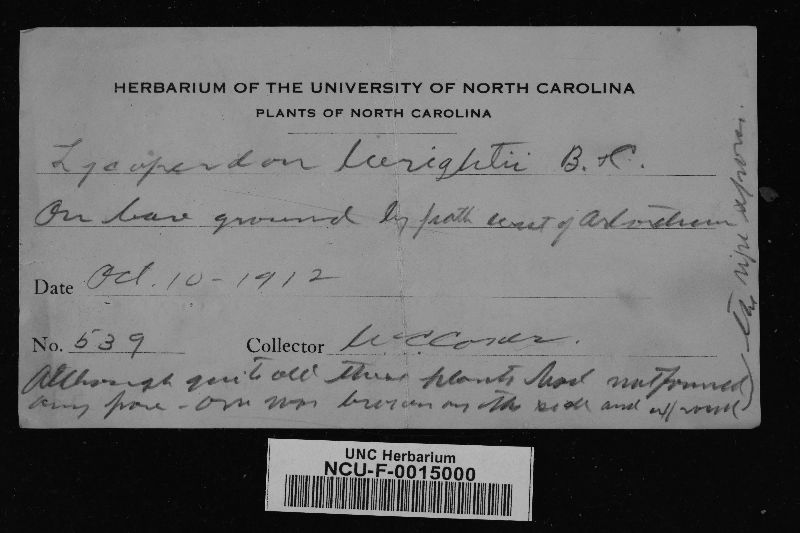 HERBARIUM OF THE UNIVERSITY OF NORTH CAROLINA
PLANTS OF NORTH CAROLINA
Lycoperdon Wrightii B. & C.
On bare ground by path west of Arboretum
Date Oct. 10 - 1912
No. 539 Collector W C Coker.
Although quite old these plants had not formed
any pore - One was broken on the side and
the ripe spores.
UNC Herbarium
NCU-F-0015000